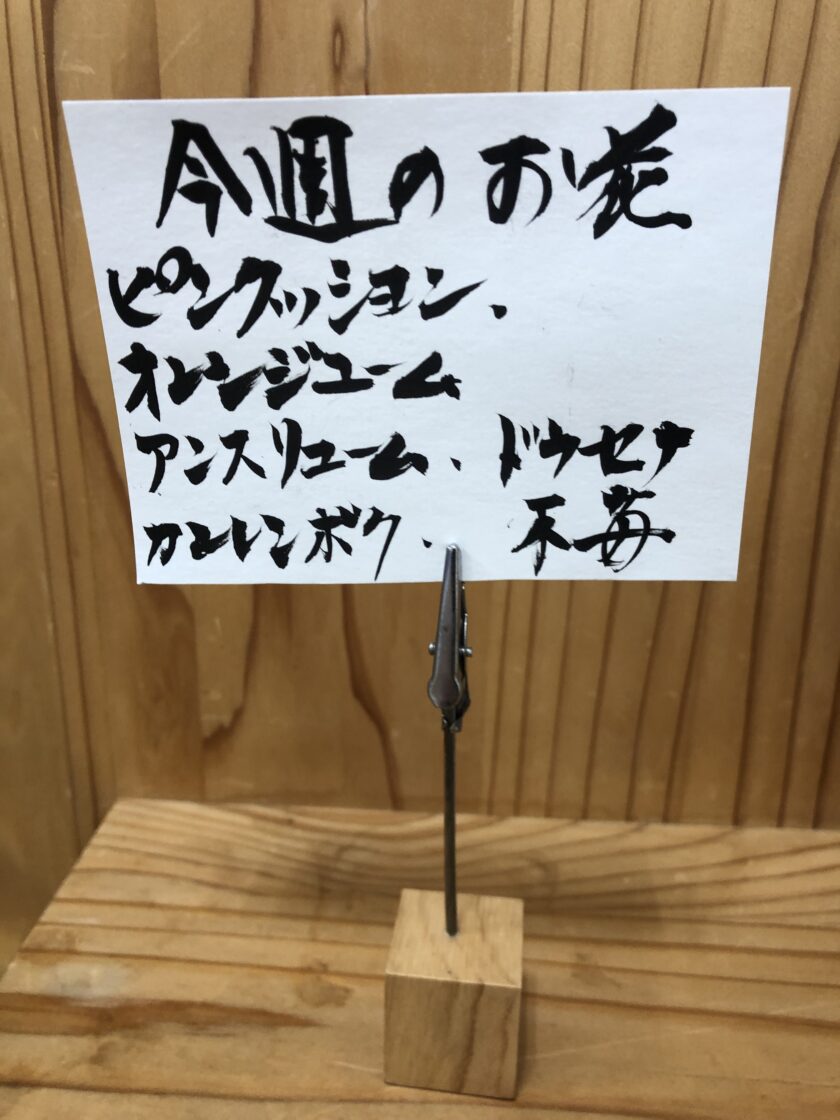 今週のお花
ピンクッション、
オレンジューム
アンスリューム、ドウセナ
カンレンボク、木苺